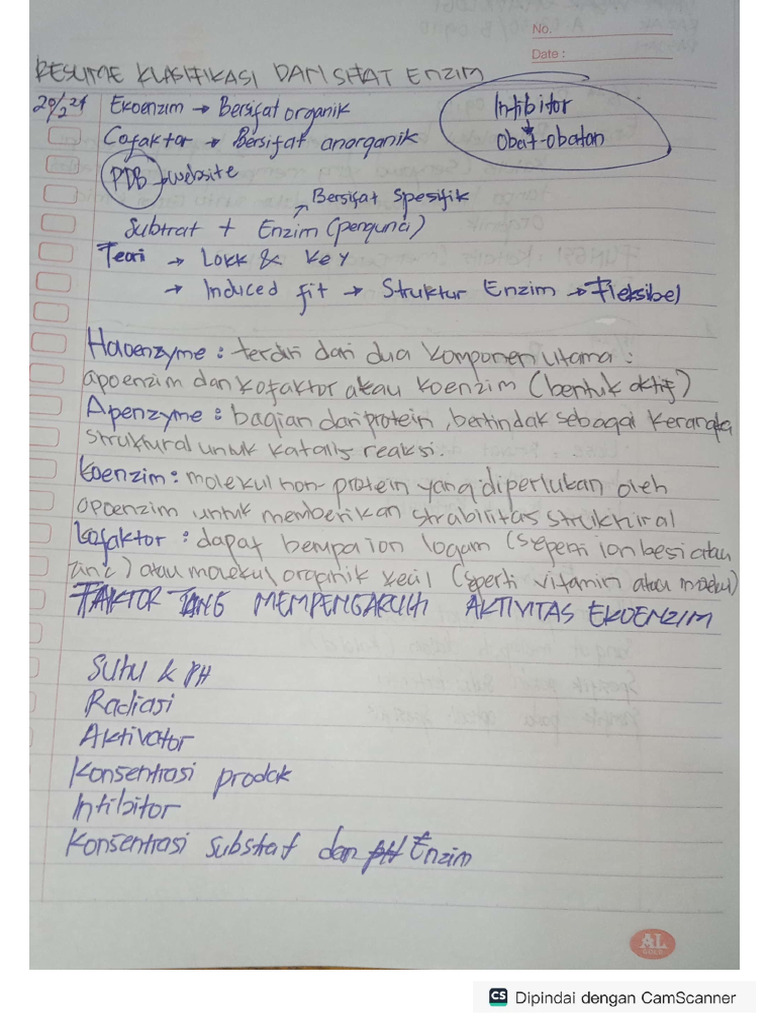 No.
Date :
RESUME KLASIFIKASI DAN SIFAT ENZIM
20/2 24 Ekoenzim → Bersifat organik
Intibitor
Cofaktor → Bersifat anorganik
Obat-obatan
PDB → website
→ Bersifat Spesifik
Subtrat + Enzim (pengunci)
Teori → Lokk & Key
→ Induced fit → Struktur Enzim → Fleksibel
Haoenzyme : terdiri dari dua komponen utama :
apoenzim dan kofaktor atau koenzim (bentuk aktif)
Apenzyme : bagian dari protein, bertindak sebagai kerangka
struktural untuk katalis reaksi.
Koenzim : molekul non-protein yang diperlukan oleh
apoenzim untuk memberikan strabilitas struktural
Kofaktor : dapat berupa ion logam (seperti ion besi atau
zinc) atau molekul organik kecil (seperti vitamin atau
FAKTOR YANG MEMPENGARUHI AKTIVITAS EKOENZIM
Suhu & PH
Radiasi
Aktivator
Konsentrasi prodak
Intibitor
Konsentrasi substrat dan Enzim
AL
CS Dipindai dengan CamScanner